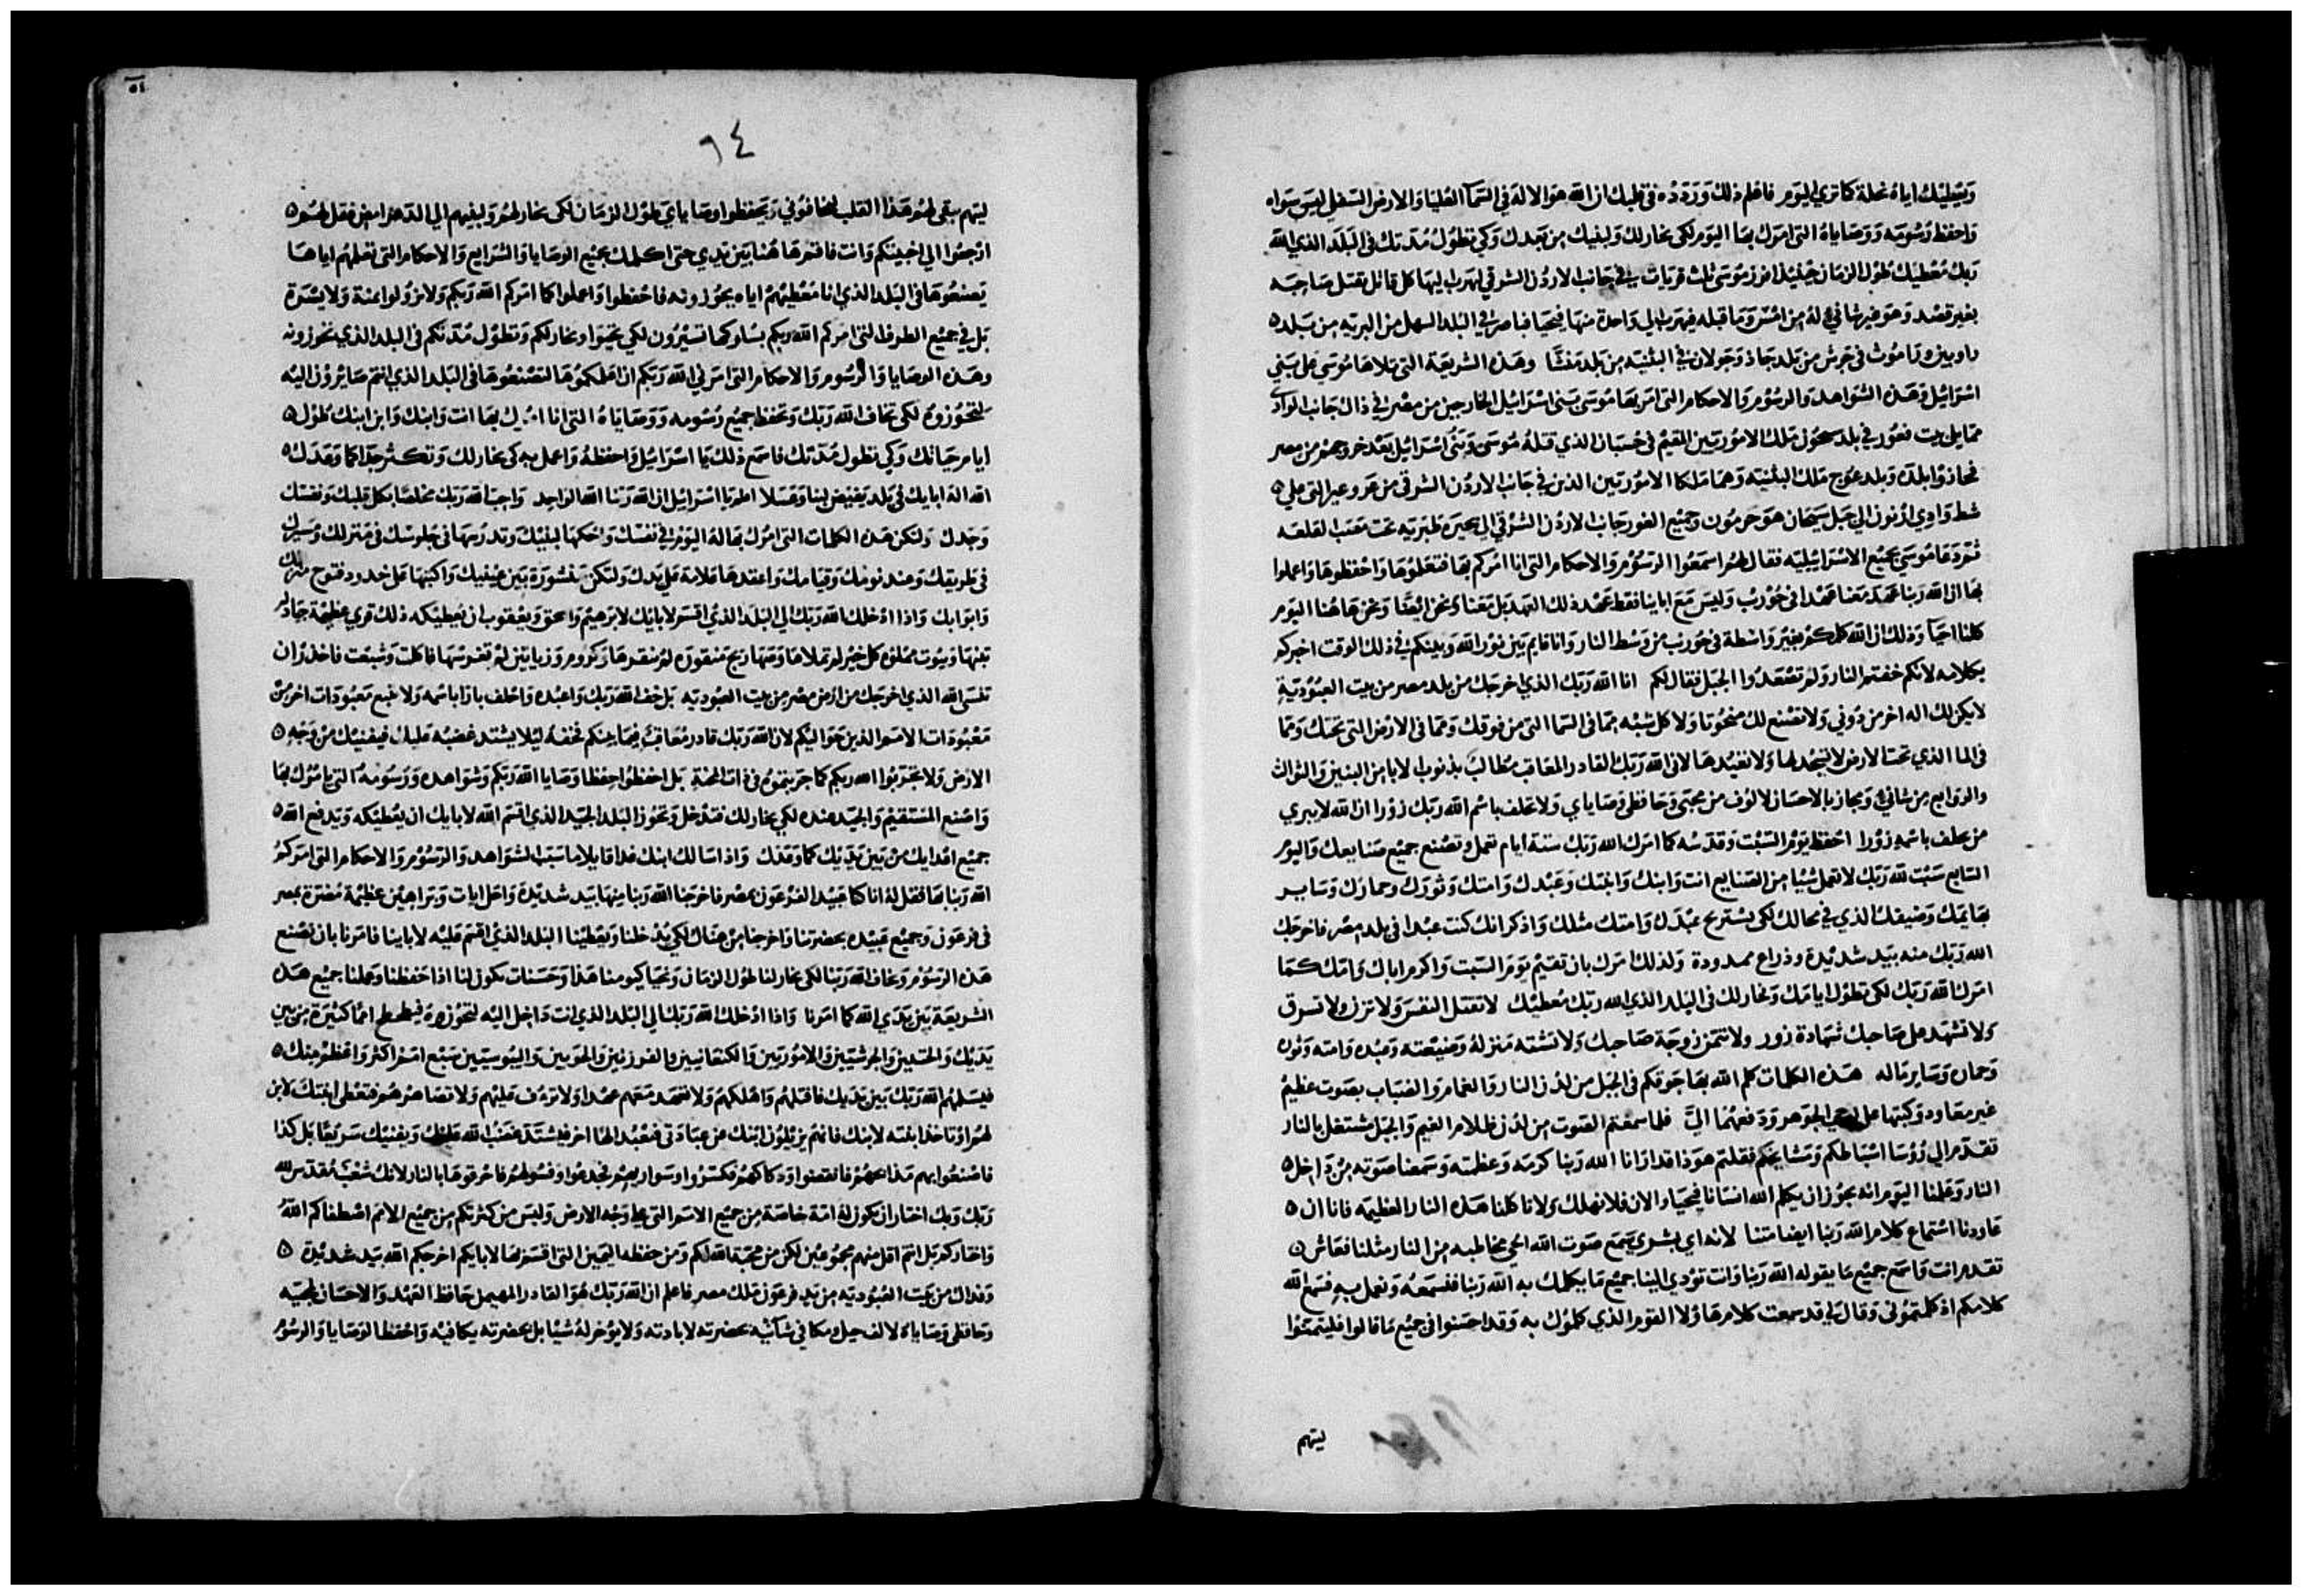 ويعطيك اياه نحلة كما تري اليوم فاعلم ذلك وردده في قلبك ان الله هو الاله في السما العليا والارض السفلي ليس سواه
واحفظ رسومه ووصاياه التي امرك بها اليوم لكي يخار لك ولبنيك من بعدك وكي تطول مدتك في البلد الذي الله
ربك معطيك طول الزمان حينيذ افرز موسي ثلث قريات في جانب الاردن الشرقي ليهرب اليها كل قاتل يقتل صاحبه
بغير قصد وهو غير شاني له من امس وما قبله فيهرب الي واحدة منها فيحيا فباصر في البلد السهل من البريه من بلد
راوبين وراموث في جرش من بلد جاذ وجولان في البثنيه من بلد منشا وهذه الشريعة التي تلاها موسي علي بني
اسرائيل وهذه الشواهد والرسوم والاحكام التي امر بها موسي بني اسرائيل الخارجين من مصر في ذاك جانب الواد
مما يلي بيت فغور في بلد سحون ملك الاموريين المقيم في حسبان الذي قتله موسي وبني اسرائيل بعد خروجهم من مصر
فحازوا بلده وبلد عوج ملك البثنيه وهما ملكا الاموريين الذين في جانب الاردن الشرقي من عروعير التي علي
شط وادي ارنون الي جبل سيحان هو حرمون وجميع الغور جانب الاردن الشرقي الي بحيرة طبريه تحت مصب القلعه
ثم دعا موسي بجميع الاسرائيليه فقال لهم اسمعوا الرسوم والاحكام التي انا امركم بها فتعلموها واحفظوها واعملوا
بها ان الله ربنا عهد معنا عهدا في حوريب وليس مع اباينا فقط عهد ذلك العهد بل معنا ونحن ايضا ونحن هاهنا اليوم
كلنا احيا وذلك ان الله كلمكم بغير واسطة في حوريب من وسط النار وانا قايم بين نور الله وبينكم في ذلك الوقت اخبركم
بكلامه لانكم خفتم النار ولم تصعدوا الجبل فقال لكم انا الله ربك الذي اخرجك من بلد مصر من بيت العبودية
لا يكن لك اله اخر من دوني ولا تصنع لك منحوتا ولا كل شبه مما في السما التي من فوقك ومما في الارض التي تحتك ومما
في الما الذي تحت الارض لا تسجد لها ولا تعبدها لاني الله ربك القادر المعاقب مطالب بذنوب الابا من البنين والثوالث
والروابع من شاني ومجاز بالاحسان لالوف من محبي وحافظي وصاياي ولا تحلف باسم الله ربك زورا ان الله لا يبري
من يحلف باسمه زورا احفظ يوم السبت وقدسه كما امرك الله ربك ستة ايام تعمل وتصنع جميع صنايعك واليوم
السابع سبت لله ربك لا تعمل شيا من الصنايع انت وابنك وابنتك وعبدك وامتك وثورك وحمارك وساير
بهايمك وضيفك الذي في محالك لكي يستريح عبدك وامتك مثلك واذكر انك كنت عبدا في بلد مصر فاخرجك
الله ربك منه بيد شديدة وذراع ممدودة ولذلك امرك بان تقيم يوم السبت واكرم اباك وامك كما
امرك الله ربك لكي تطول ايامك ويخار لك في البلد الذي الله ربك معطيك لا تقتل النفس ولا تزن ولا تسرق
ولا تشهد علي صاحبك شهادة زور ولا تتمن زوجة صاحبك ولا تشته منزله وضيعته وعبده وامته وثوره
وحماره وساير ماله هذه الكلمات كلم الله بها جوقكم في الجبل من لدن النار والغمام والضباب بصوت عظيم
غير معاود وكتبها علي لوحي الجوهر ودفعهما الي فلما سمعتم الصوت من لدن ظلام الغيم والجبل مشتعل بالنار
تقدم الي رؤسا اسباطكم ومشايخكم فقلتم هوذا قد ارانا الله ربنا كرمه وعظمته وسمعنا صوته من داخل
النار وعلمنا اليوم انه يجوز ان يكلم الله انسانا فيحيا والان فلا نهلك ولا تاكلنا هذه النار العظيمه فانا ان
عاودنا استماع كلام الله ربنا ايضا متنا لانه اي بشري سمع صوت الله الحي مخاطبه من النار مثلنا فعاش
تقدم انت واسمع جميع ما يقوله الله ربنا وانت تؤدي الينا جميع ما يكلمك به الله ربنا فنسمعه ونعمل به فسمع الله
كلامكم اذ كلمتموني وقال لي قد سمعت كلام هاولا القوم الذي كلموك به وقد احسنوا في جميع ما قالوا فليتمتوا
ليتهم
٥٤
٩٤
ليتهم يبقي لهم هذا القلب ليخافوني ويحفظوا وصاياي طول الزمان لكي يخار لهم ولبنيهم الي الدهر امض فقل لهم
ارجعوا الي اخبيتكم وانت فاقم هاهنا بين يدي حتي اكلمك بجميع الوصايا والشرايع والاحكام التي تعلمهم اياها
يصنعوها في البلد الذي انا معطيهم اياه يحوزونه فاحفظوا واعملوا كما امركم الله ربكم ولا تزولوا يمنة ولا يسرة
بل في جميع الطرق التي امركم الله ربكم بسلوكها تسيرون لكي تحيوا ويخار لكم وتطول مدتكم في البلد الذي تحوزونه
وهذه الوصايا والرسوم والاحكام التي امرني الله ربكم ان اعلمكموها لتصنعوها في البلد الذي انتم صايرون اليه
لتحوزوه لكي تخاف الله ربك وتحفظ جميع رسومه ووصاياه التي انا امرك بها انت وابنك وابن ابنك طول
ايام حياتك وكي تطول مدتك فاسمع ذلك يا اسرائيل واحفظه واعمل به كي يخار لك وتكثر جدا كما وعدك
الله اله ابايك في بلد يفيض لبنا وعسلا اعلم يا اسرائيل ان الله ربنا الله الواحد واحب الله ربك مخلصا بكل قلبك ونفسك
وجدك ولتكن هذه الكلمات التي امرك بها اليوم في نفسك واحكها لبنيك وتدرسها في جلوسك في منزلك ومسيرك
في طريقك وعند نومك وقيامك واعقدها علامة علي يدك ولتكن منشورة بين عينيك واكتبها علي خدود فتوح منزلك
وابوابك واذا ادخلك الله ربك الي البلد الذي اقسم لابايك لابرهيم واسحق ويعقوب ان يعطيكه ذلك قري عظيمة جياد لم
تبنها وبيوت مملوه كل خير لم تملاها وصهاريج منقوره لم تنقرها وكروم وزياتين لم تغرسها فاكلت وشبعت فاحذر ان
تنسي الله الذي اخرجك من ارض مصر من بيت العبوديه بل خف الله ربك واعبده واحلف بارا باسمه ولا تتبع معبودات اخر من
معبودات الامم الذين حواليكم لان الله ربك قادر معاقب فيما بينكم تخفه ليلا يشتد غضبه عليك فيفنيك من وجه
الارض ولا تجربوا الله ربكم كما جربتموه في ذات المحنة بل احفظوا حفظا وصايا الله ربكم وشواهده ورسومه التي يامرك بها
واصنع المستقيم والجيد عنده لكي يخار لك فتدخل وتحوز البلد الجيد الذي اقسم الله لابايك ان يعطيكه ويدفع الله
جميع اعدايك من بين يديك كما وعدك واذا سالك ابنك غدا قايلا ما سبب الشواهد والرسوم والاحكام التي امركم
الله ربنا بها فقل له انا كنا عبيد الفرعون بمصر فاخرجنا الله ربنا منها بيد شديدة واحل ايات وبراهين عظيمة مضرة بمصر
في فرعون وجميع عبيده بحضرتنا واخرجنا من هناك لكي يدخلنا ويعطينا البلد الذي اقسم عليه لاباينا فامرنا بان نصنع
هذه الرسوم ونخاف الله ربنا لكي يخار لنا طول الزمان ونحيا كيومنا هذا وحسنات تكون لنا اذا حفظنا وعملنا جميع هذه
الشريعة بين يدي الله كما امرنا واذا ادخلك الله ربك الي البلد الذي انت داخل اليه لتحوزه فيطحطح امما كثيرة من بين
يديك والحتيين والجرشيين والاموريين والكنعانيين والفرزيين والحويين واليبوسيين سبع امم اكثر واعظم منك
فيسلمهم الله ربك بين يديك فاقتلهم واهلكهم ولا تعهد معهم عهدا ولا ترؤف عليهم ولا تصاهرهم فتعطي ابنتك لابن
لهم او تاخذ ابنته لابنك فانهم يزيلون ابنك من عبادتي فيعبد الها اخر فيشتد غضب الله عليك ويفنيك سريعا بل كذا
فاصنعوا بهم مذابحهم فانقضوا ودكاكهم فكسروا وسواريهم فجدعوا وفسولهم فاحرقوها بالنار لانك شعب مقدس لله
ربك وبك اختار ان تكون له امة خاصة من جميع الامم التي علي وجه الارض وليس من كثرتكم من جميع الامم اصطفاكم الله
واختاركم بل انتم اقل منهم مجموعين لكن من محبة الله لكم ومن حفظه اليمين التي اقسم بها لابايكم اخرجكم الله بيد شديدة
وفداك من بيت العبوديه من يد فرعون ملك مصر فاعلم ان الله ربك هو القادر المهيمن حافظ العهد والاحسان لمحبيه
وحافظي وصاياه لالف جيل ومكافي شانيه بحضرته لابادته ولا يؤخر له شيا بل بحضرته يكافيه واحفظ الوصايا والرسوم